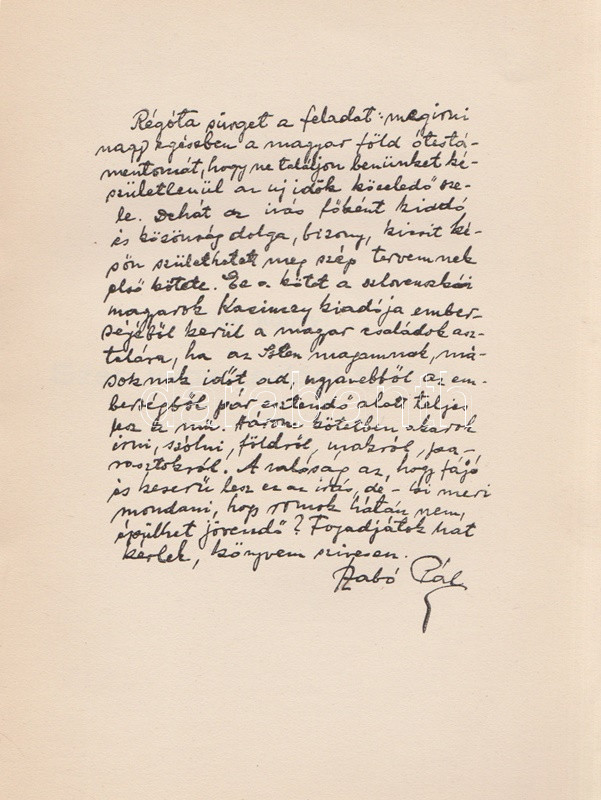 Régóta sürget a feladat: megirni
nagy egészében a magyar föld ótestá-
mentomát, hogy ne találjon benünket ké-
születlenül az uj idők közeledő sze-
le. Dehát az irás főként kiadó
és közönség dolga, bizony, kissit ké-
sőn születhetett meg szép tervemnek
első kötete. Ez a kötet a szlovenszkói
magyarok Kazinczy kiadója ember-
ségéből kerül a magyar családok asz-
talára, ha az Isten magamnak, má-
soknak időt ad, ugyanebből az em-
berségből pár esztendő alatt teljes
lesz a mű. Három kötetben akarok
irni, szólni, földről, urakról, pa-
rasztokról. A valóság az, hogy fájó
és keserű lesz ez az irás, de - ki meri
mondani, hogy romok hátán nem
épülhet jövendő? Fogadjátok hát
kérlek, könyvem szivesen.
Szabó Pál